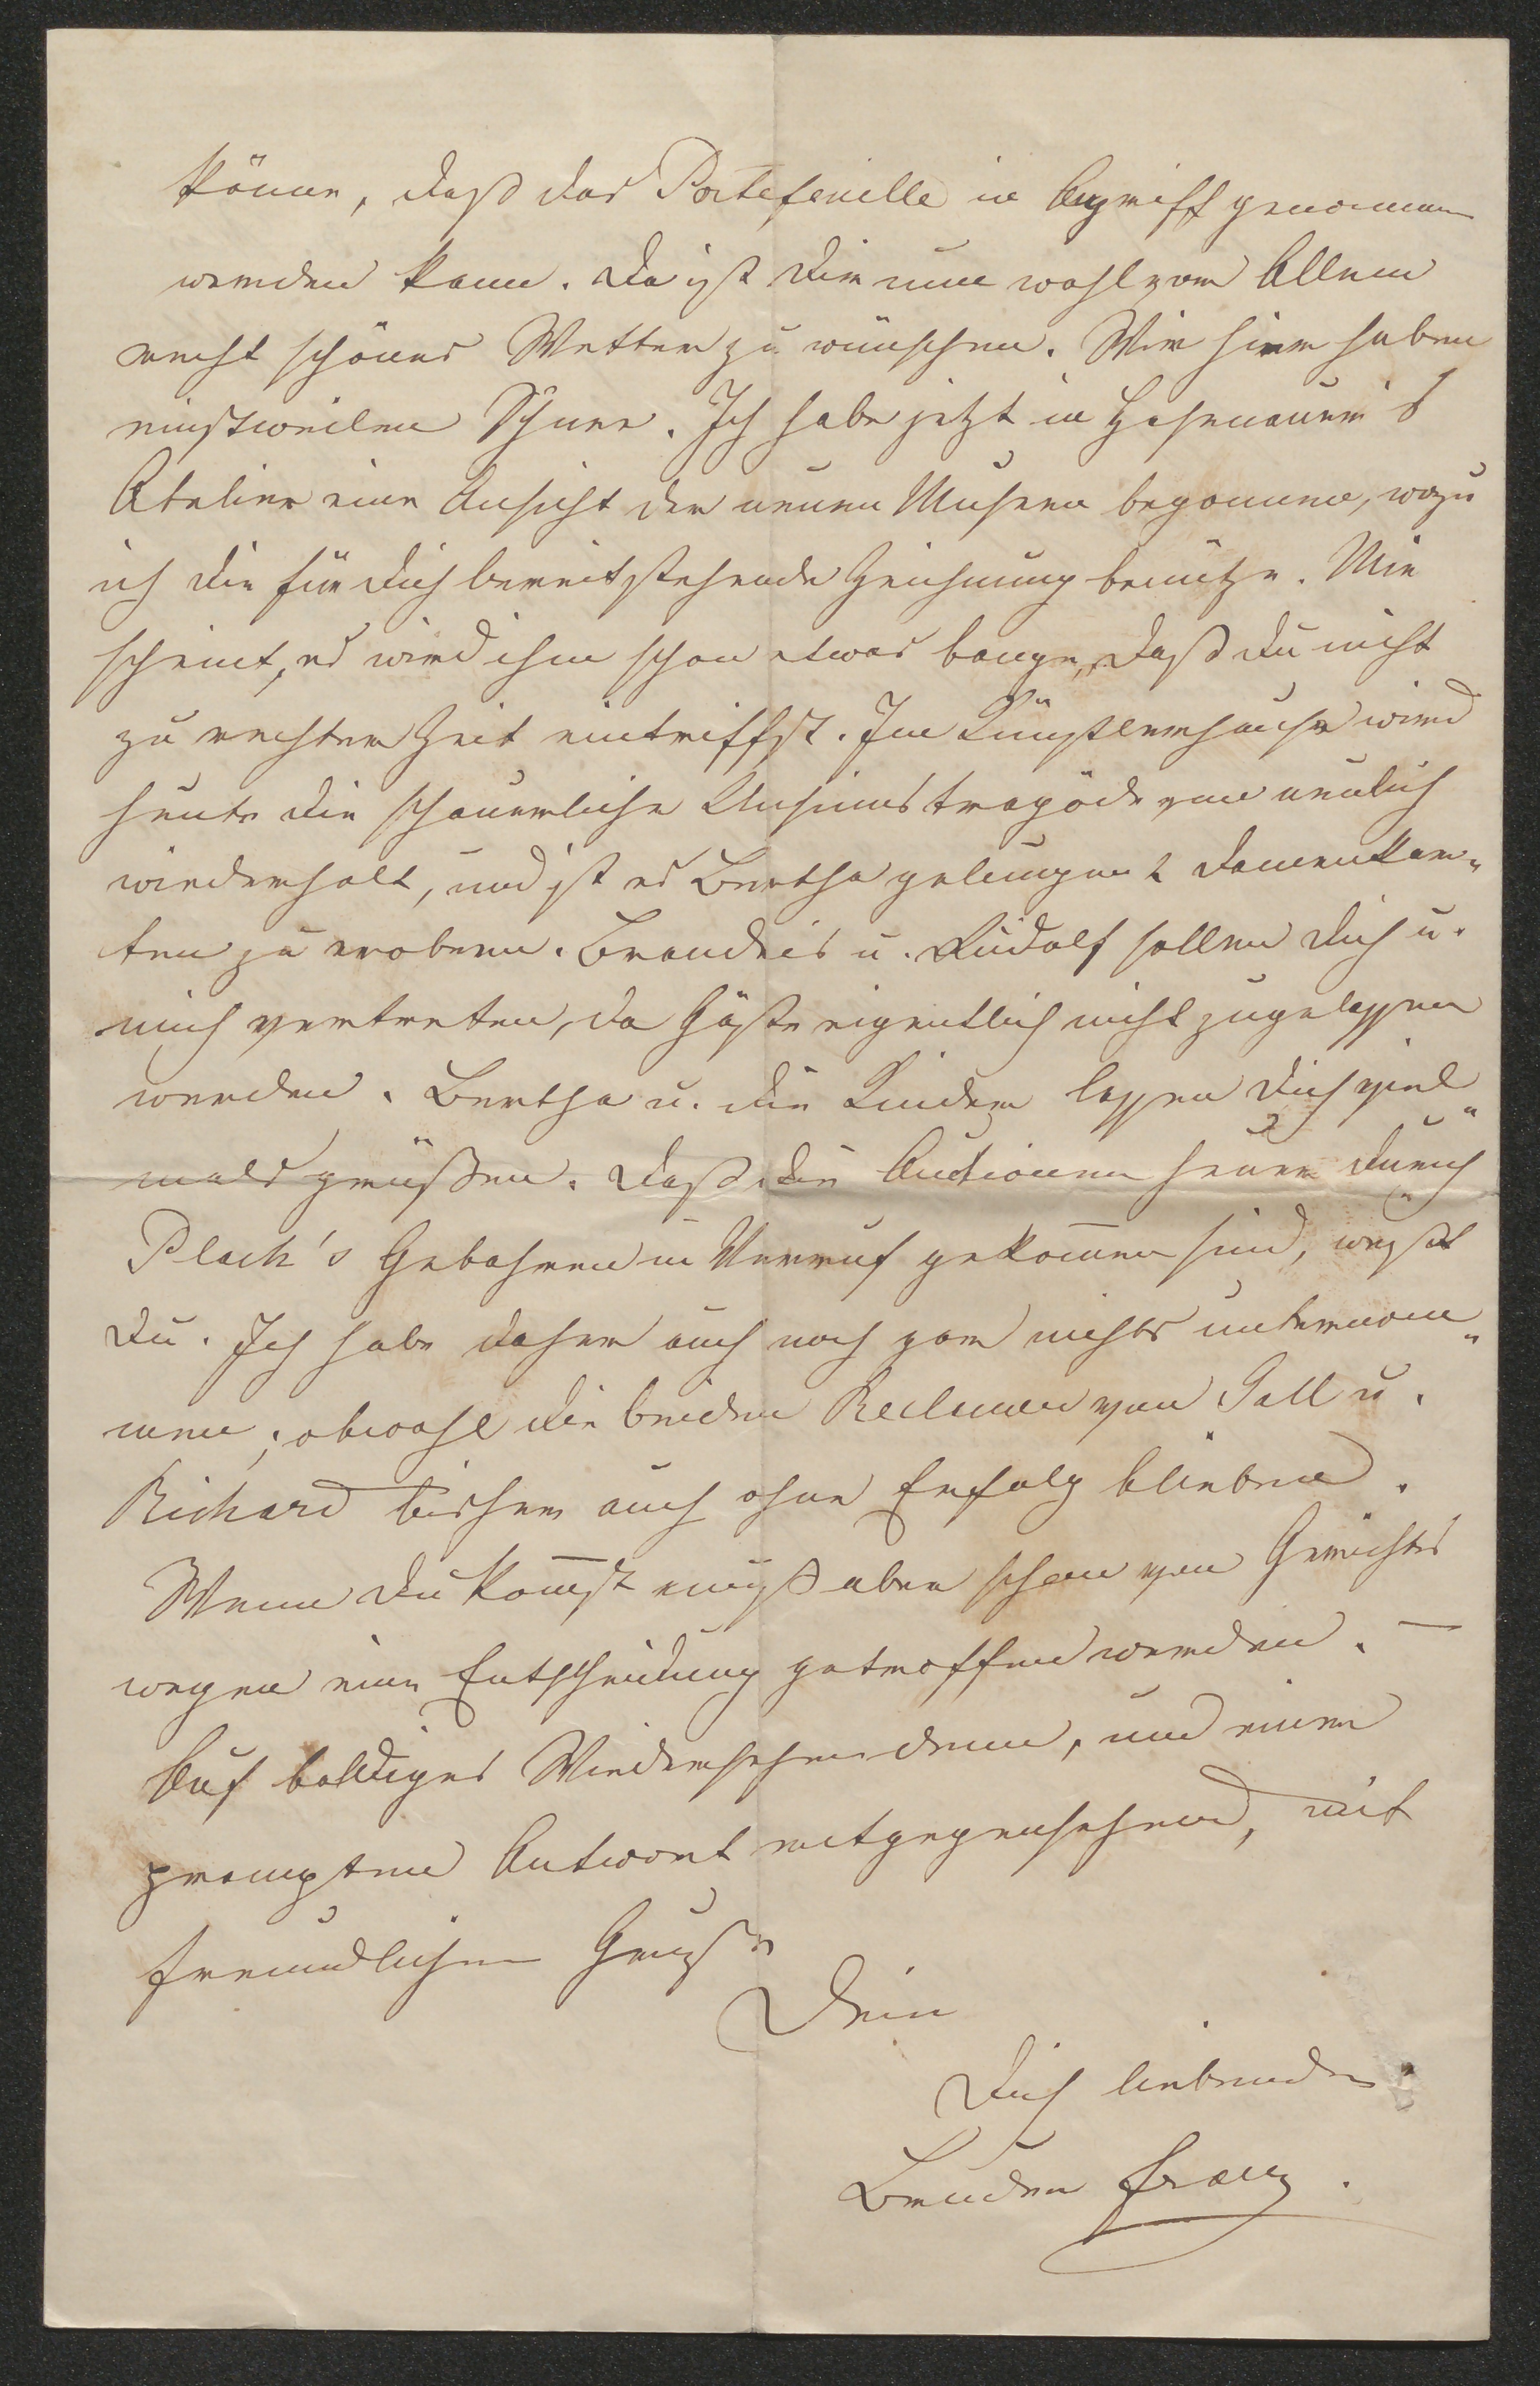 könne, daß das Portefeuille in Angriff genommen
werden kann. Da ist Dir nun wohl vor Allem
recht schönes Wetter zu wünschen. Wir hier haben
einstweilen Schnee. Ich habe jetzt in Hasenauer's
Atelier eine Ansicht der neuen Museen begonnen, wozu
ich die für Dich bereitstehende Zeichnung benütze. Mir
scheint, es wird ihm schon etwas bange, daß Du nicht
zu rechter Zeit eintriffst. Im Künstlerhause wird
heute die schauerliche Unsinnstragödie von neulich
wiederholt, und ist es Bertha gelungen 2 Damenkar-
ten zu erobern. Brandeis u. Rudolf sollen Dich u.
mich vertreten, da Gäste eigentlich nicht zugelassen
werden. Bertha u. die Kinder lassen Dich viel-
mals grüßen. Daß die Auctionen heuer durch
Plach's Gebahren in Verruf gekommen sind, weißt
Du. Ich habe daher auch noch gar nichts unternom-
men; obwohl die beiden von Sall u.
Richard bisher auch ohne Erfolg blieben.
Wenn Du kommst muß aber schon von Gerichts
wegen eine Entscheidung getroffen werden. —
Auf baldiges Wiedersehen denn, und einer
prompten Antwort entgegensehend, mit
freundlichem Gruße
Dein
Dich liebender
Bruder Franz.